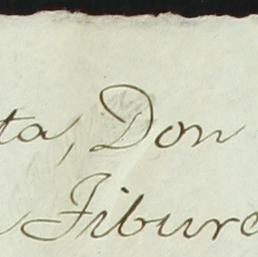 ta, Don
Tibure